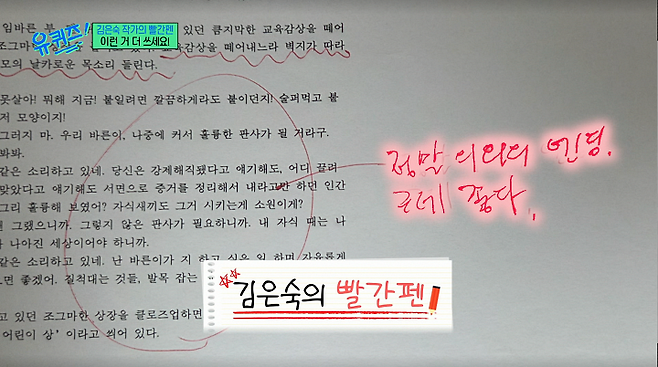 유퀴즈
김은숙 작가의 빨간펜
이런 거 더 쓰세요!
임바른 부 있던 큼지막한 교육감상을 떼어
조그마 교육감상을 떼어내느라 벽지가 따라
모의 날카로운 목소리 들린다.
못살아! 뭐해 지금! 붙일려면 깔끔하게라도 붙이던지! 술퍼먹고 붙
저 모양이지!
그러지 마. 우리 바른이, 나중에 커서 훌륭한 판사가 될 거라구.
봐봐.
같은 소리하고 있네. 당신은 강제해직됐다고 얘기해도, 어디 끌려
맞았다고 얘기해도 서면으로 증거를 정리해서 내라고만 하던 인간
그리 훌륭해 보였어? 자식새끼도 그거 시키는게 소원이게?
그랬으니까. 그렇지 않은 판사가 필요하니까. 내 자식 때는 나
나아진 세상이어야 하니까.
같은 소리하고 있네. 난 바른이가 지 하고 싶은 일 하며 자유롭게
면 좋겠어. 질척대는 것들, 발목 잡는
고 있던 조그마한 상장을 클로즈업하면
어린이 상' 이라고 씌어 있다.
정말 의외의 엔딩.
근데 좋다.
김은숙의 빨간펜